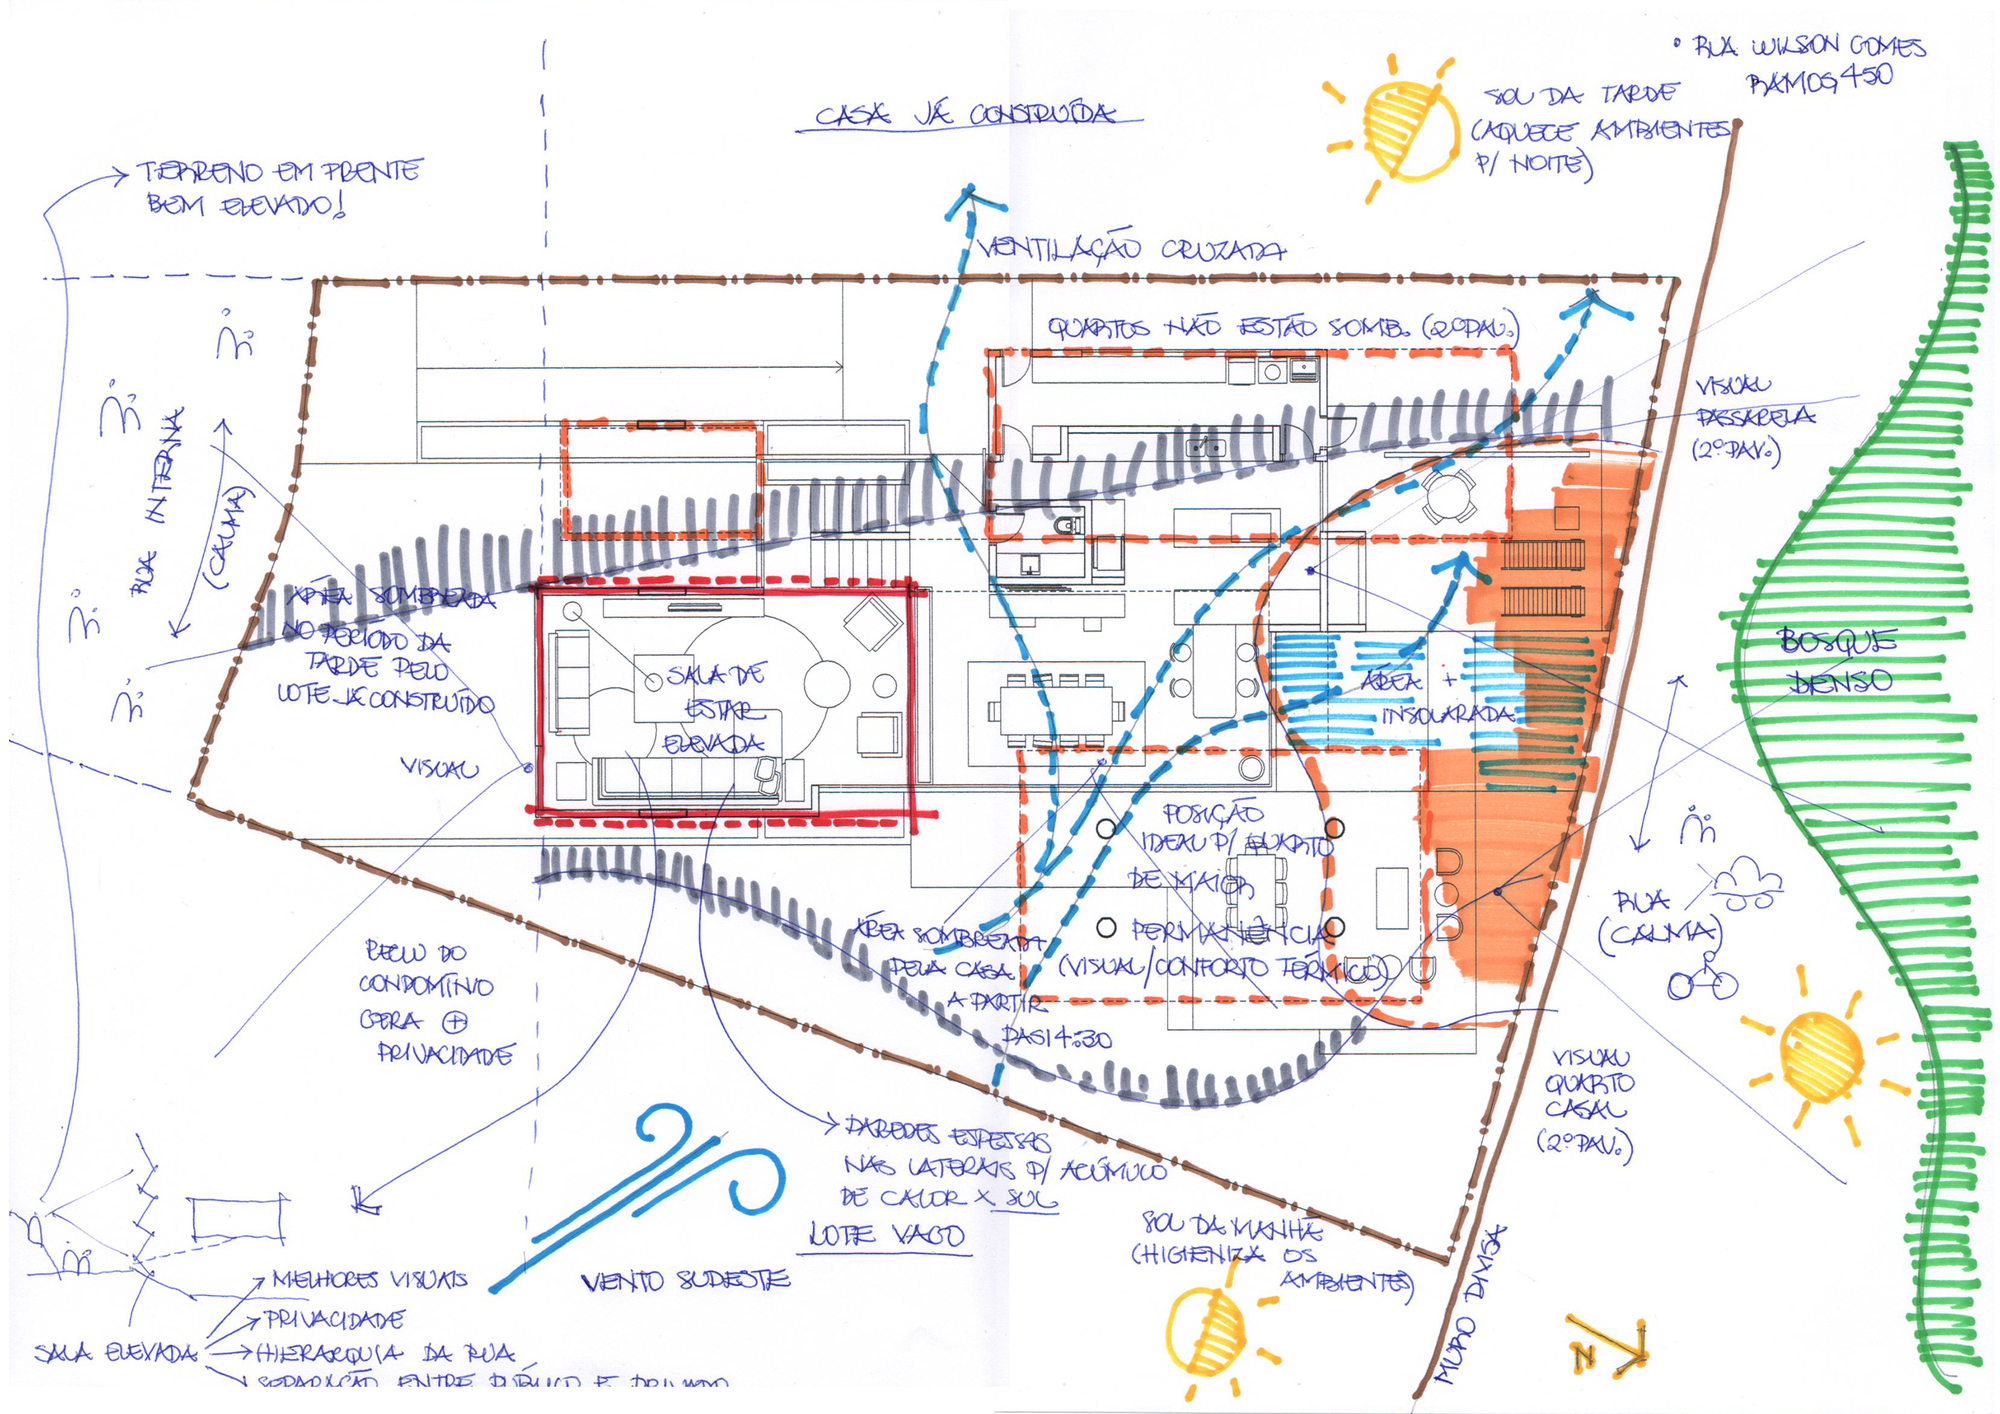 • RUA WILSON GOMES
RAMOS 450
SOL DA TARDE
(AQUECE AMBIENTES
P/ NOITE)
CASA JÁ CONSTRUÍDA
TERRENO EM FRENTE
BEM ELEVADO!
VENTILAÇÃO CRUZADA
QUARTOS NÃO ESTÃO SOMB. (2º PAV.)
VISUAL
PASSARELA
(2º PAV.)
RUA INTERNA
(CALMA)
ÁREA SOMBREADA
NO PERÍODO DA
TARDE PELO
LOTE JÁ CONSTRUÍDO
SALA DE
ESTAR
ELEVADA
VISUAL
ÁREA +
INSOLARADA
BOSQUE
DENSO
POSIÇÃO
IDEAL P/ QUARTO
DE MAIOR
PERMANÊNCIA
(VISUAL/CONFORTO TÉRMICO)
ÁREA SOMBREADA
PELA CASA
A PARTIR
DAS 14:30
RUA
(CALMA)
RECUO DO
CONDOMÍNIO
GERA +
PRIVACIDADE
VISUAL
QUARTO
CASAL
(2º PAV.)
PAREDES ESPESSAS
NAS LATERAIS P/ ACÚMULO
DE CALOR X SUL
LOTE VAGO
SOL DA MANHÃ
(HIGIENIZA OS
AMBIENTES)
VENTO SUDESTE
MURO DIVISA
N
SALA ELEVADA
MELHORES VISUAIS
PRIVACIDADE
HIERARQUIA DA RUA
SEPARAÇÃO ENTRE PÚBLICO E PRIVADO